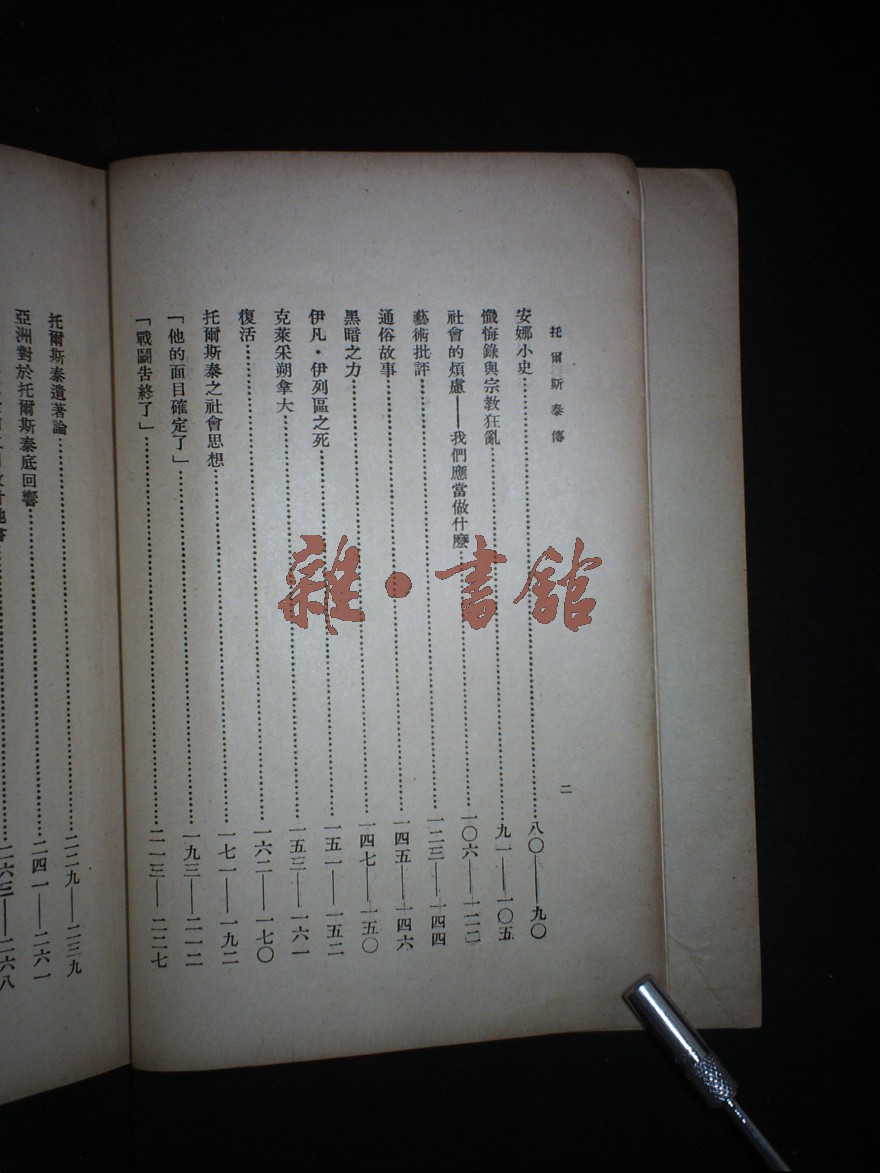 托爾斯泰傳
二
安娜小史……八〇——九〇
懺悔錄與宗教狂亂……九一——一〇五
社會的煩慮——我們應當做什麽……一〇六——一二二
藝術批評……一二三——一四四
通俗故事……一四五——一四六
黑暗之力……一四七——一五〇
伊凡·伊列區之死……一五一——一五二
克萊朵朔拿大……一五三——一六一
復活……一六二——一七〇
托爾斯泰之社會思想……一七一——一九二
「他的面目確定了」……一九三——二一二
「戰鬭告終了」……二一三——二二七
托爾斯泰遺著論……二二九——二三九
亞洲對於托爾斯泰底回響……二四一——二六一
二六三——二六八
雜·書館